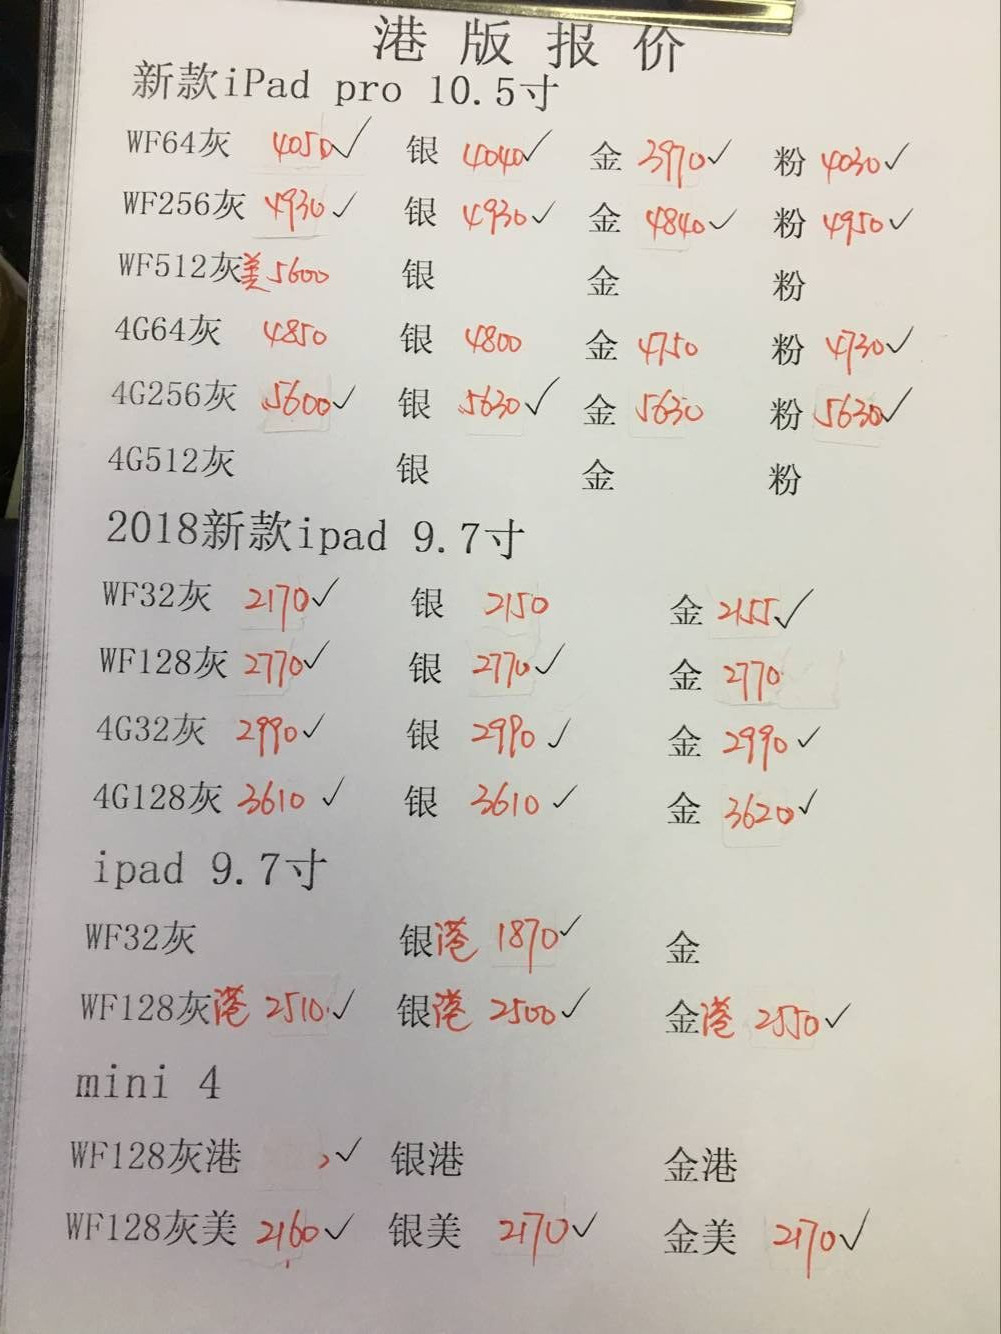 港版报价
新款iPad pro 10.5寸
WF64灰 4050✓ 银 4040✓ 金 3970✓ 粉 4030✓
WF256灰 4930✓ 银 4930✓ 金 4840✓ 粉 4950✓
WF512灰美 5600 银 金 粉
4G64灰 4850 银 4800 金 4750 粉 4730✓
4G256灰 5600✓ 银 5630✓ 金 5630 粉 5630✓
4G512灰 银 金 粉
2018新款ipad 9.7寸
WF32灰 2170✓ 银 2150 金 2155✓
WF128灰 2770✓ 银 2770✓ 金 2770
4G32灰 2990✓ 银 2990✓ 金 2990✓
4G128灰 3610✓ 银 3610✓ 金 3620✓
ipad 9.7寸
WF32灰 银港 1870✓ 金
WF128灰港 2510✓ 银港 2500✓ 金港 2550✓
mini 4
WF128灰港 ✓ 银港 金港
WF128灰美 2160✓ 银美 2170✓ 金美 2170✓